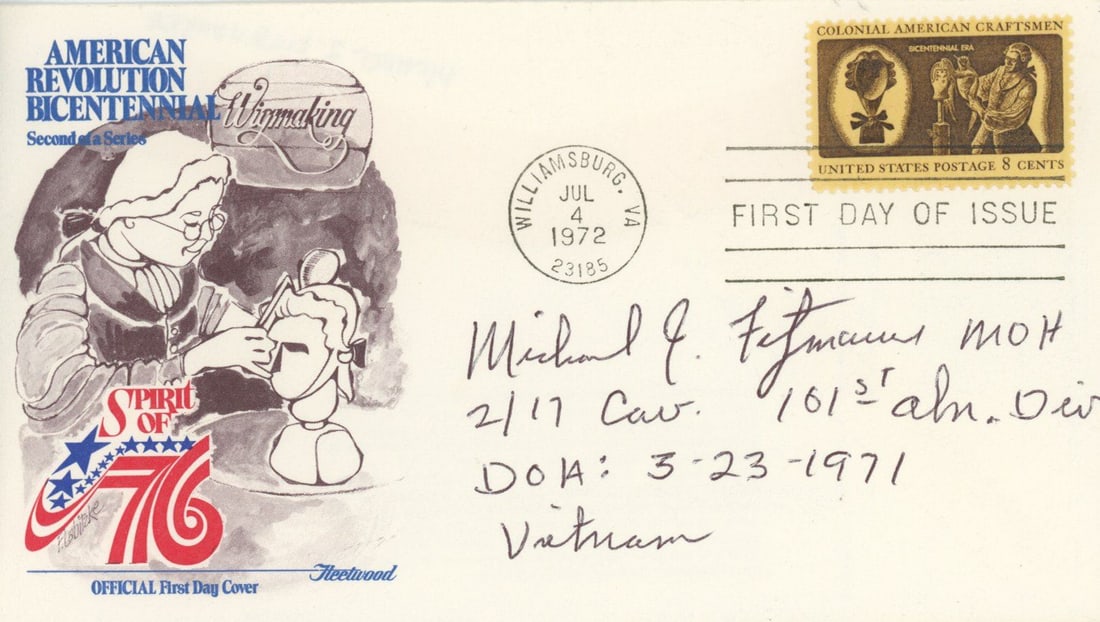 AMERICAN
REVOLUTION
BICENTENNIAL
Second of a Series
Wigmaking
COLONIAL AMERICAN CRAFTSMEN
BICENTENNIAL ERA
UNITED STATES POSTAGE 8 CENTS
WILLIAMSBURG, VA
JUL
4
1972
23185
FIRST DAY OF ISSUE
Michael J. Fitzmaurice MOH
2/17 Cav. 101ST Abn. Div
DOA: 3-23-1971
Vietnam
SPIRIT
OF
76
Fleetwood
OFFICIAL First Day Cover